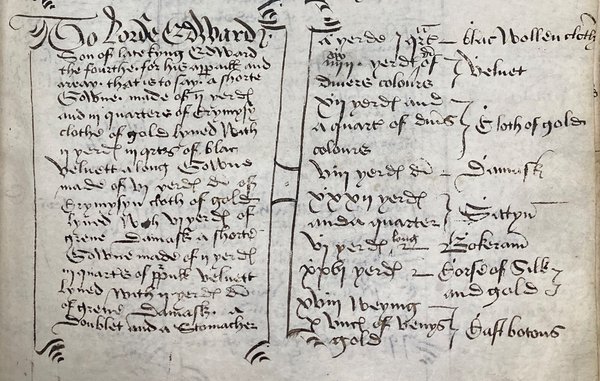 To Lorde Edward
Son of late kyng Edward
the fourthe for his appaill and
array that is to say a shorte
Gowne made of ij yerdes
and iij quarters of Crymysy
clothe of gold lyned with
ij yerdes iij qrtes of blac
velvett a long Gowne
made of vi yerdes di of
Crymysyn cloth of gold
lyned with vi yerdes of
grene Damask a shorte
Gowne made of ij yerdes
iij quartres of velvett
lyned with ij yerdes di
of grene Damask a
doublet and a Stomacher
a yerde qrt blac wollen cloth
iiii yerdes di of Velvet
divers colours
xii yerdes and
a quart of divs Cloth of golde
colours
viii yerdes di Damask
xxxii yerdes
and a quarter Sattyn
vi yerdes long Bokeram
xxvi yerdes Corse of Silk
and gold
xviii weying
x unc of Venys Cast botons
gold